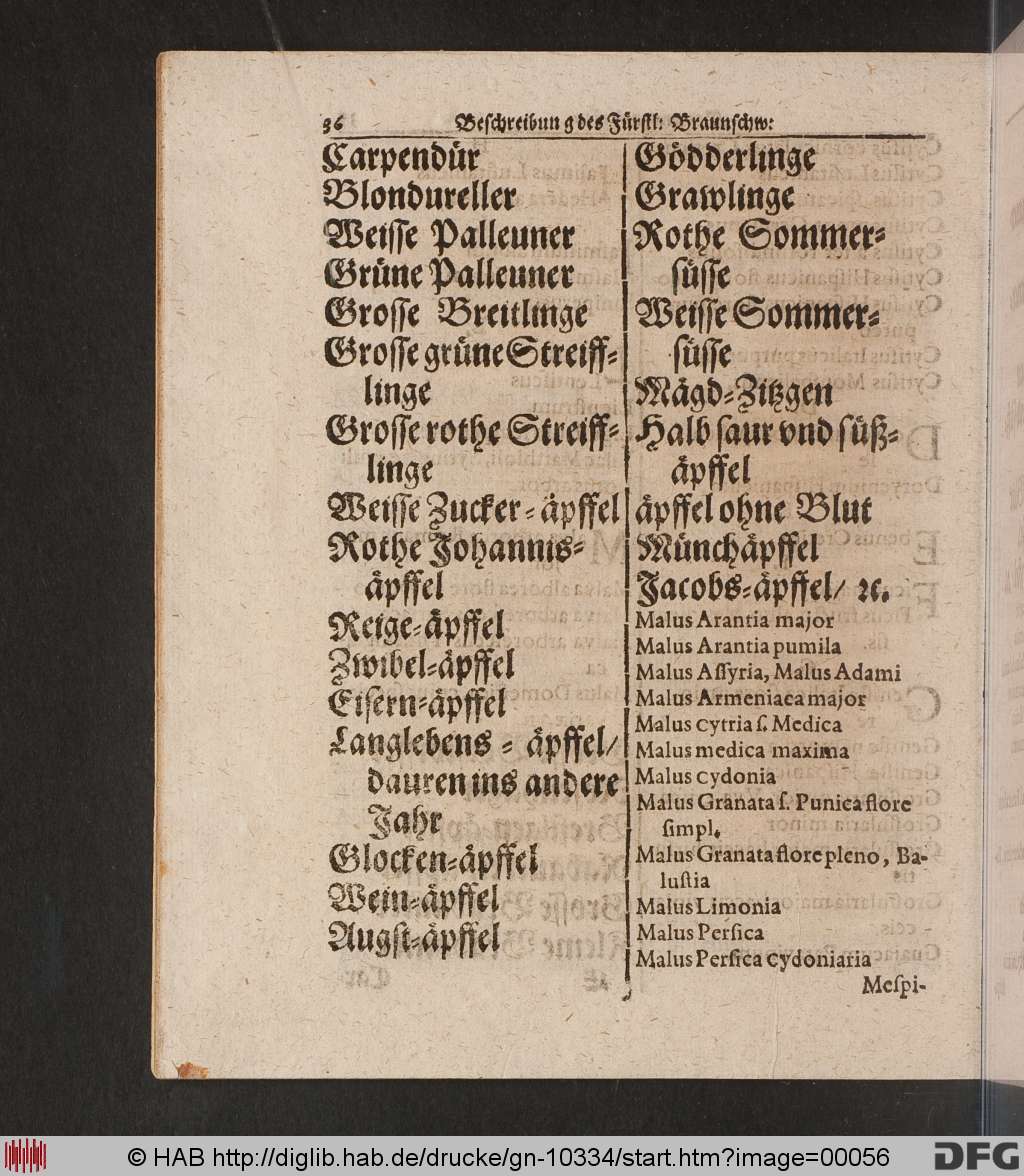 36 Beschreibung des Fürstl: Braunschw:
Carpendür
Blondureller
Weisse Palleuner
Grüne Palleuner
Grosse Breitlinge
Grosse grüne Streiff-
linge
Grosse rothe Streiff-
linge
Weisse Zucker-äpffel
Rothe Johannis-
äpffel
Reige-äpffel
Zwibel-äpffel
Eisern-äpffel
Langlebens-äpffel/
dauren ins andere
Jahr
Glocken-äpffel
Wein-äpffel
Augst-äpffel
Gödderlinge
Grawlinge
Rothe Sommer-
süsse
Weisse Sommer-
süsse
Mägd-Zitzgen
Halb saur vnd süß-
äpffel
äpffel ohne Blut
Münchäpffel
Jacobs-äpffel/ ꝛc.
Malus Arantia major
Malus Arantia pumila
Malus Aſſyria, Malus Adami
Malus Armeniaca major
Malus cytria ſ. Medica
Malus medica maxima
Malus cydonia
Malus Granata ſ. Punica flore
ſimpl.
Malus Granata flore pleno, Ba-
luſtia
Malus Limonia
Malus Perſica
Malus Perſica cydoniaria
Meſpi-
© HAB http://diglib.hab.de/drucke/gn-10334/start.htm?image=00056
DFG